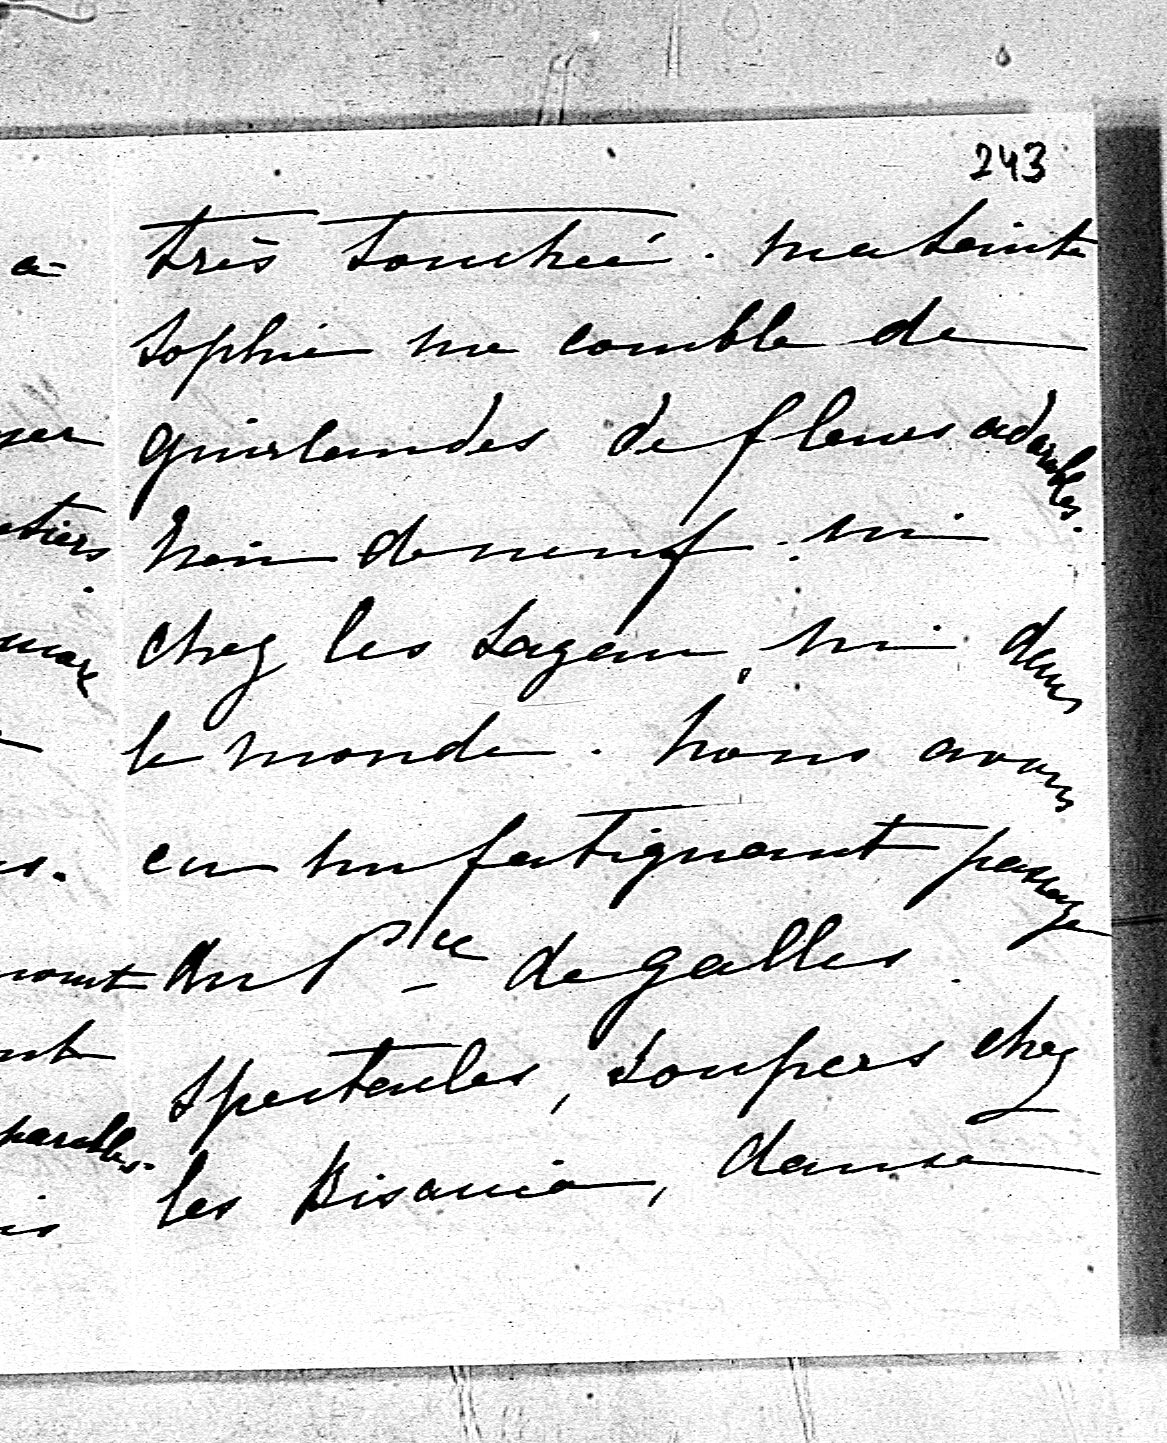 243
très touchée. ma sainte
Sophie me comble de
guirlandes de fleurs adorables.
Rien de neuf. ni
chez les Sagan, ni dans
le monde. Nous avons
eu un fatiguant passage
du Pce de galles.
Spectacles, soupers chez
les Bisaccia, danse